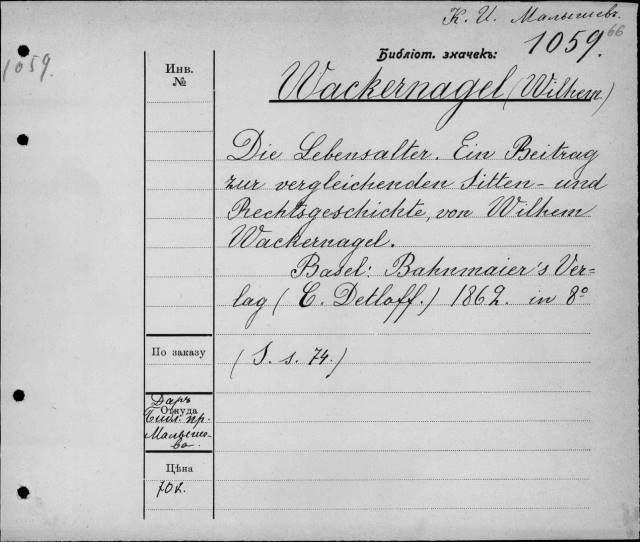 К. И. Малышевъ.
66
Библіот. значекъ:
1059.
1059.
Инв.
№
Wackernagel (Wilhem.)
Die Lebensalter. Ein Beitrag
zur vergleichenden Sitten- und
Rechtsgeschichte, von Wilhem
Wackernagel.
Basel: Bahnmaier's Ver=
lag (C. Detloff.) 1862. in 8º
По заказу
(S. s. 74.)
Даръ
Откуда
Библ. пр.
Малыше-
ва.
Цѣна
70 к.